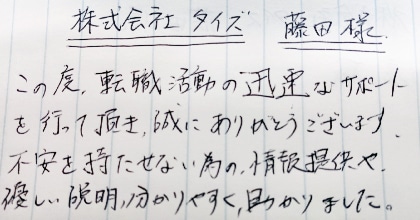 株式会社 タイズ 藤田 様
この度、転職活動の迅速なサポート
を行って頂き、誠にありがとうございます。
不安を持たせない為の、情報提供や、
優しい説明、分かりやすく、助かりました。